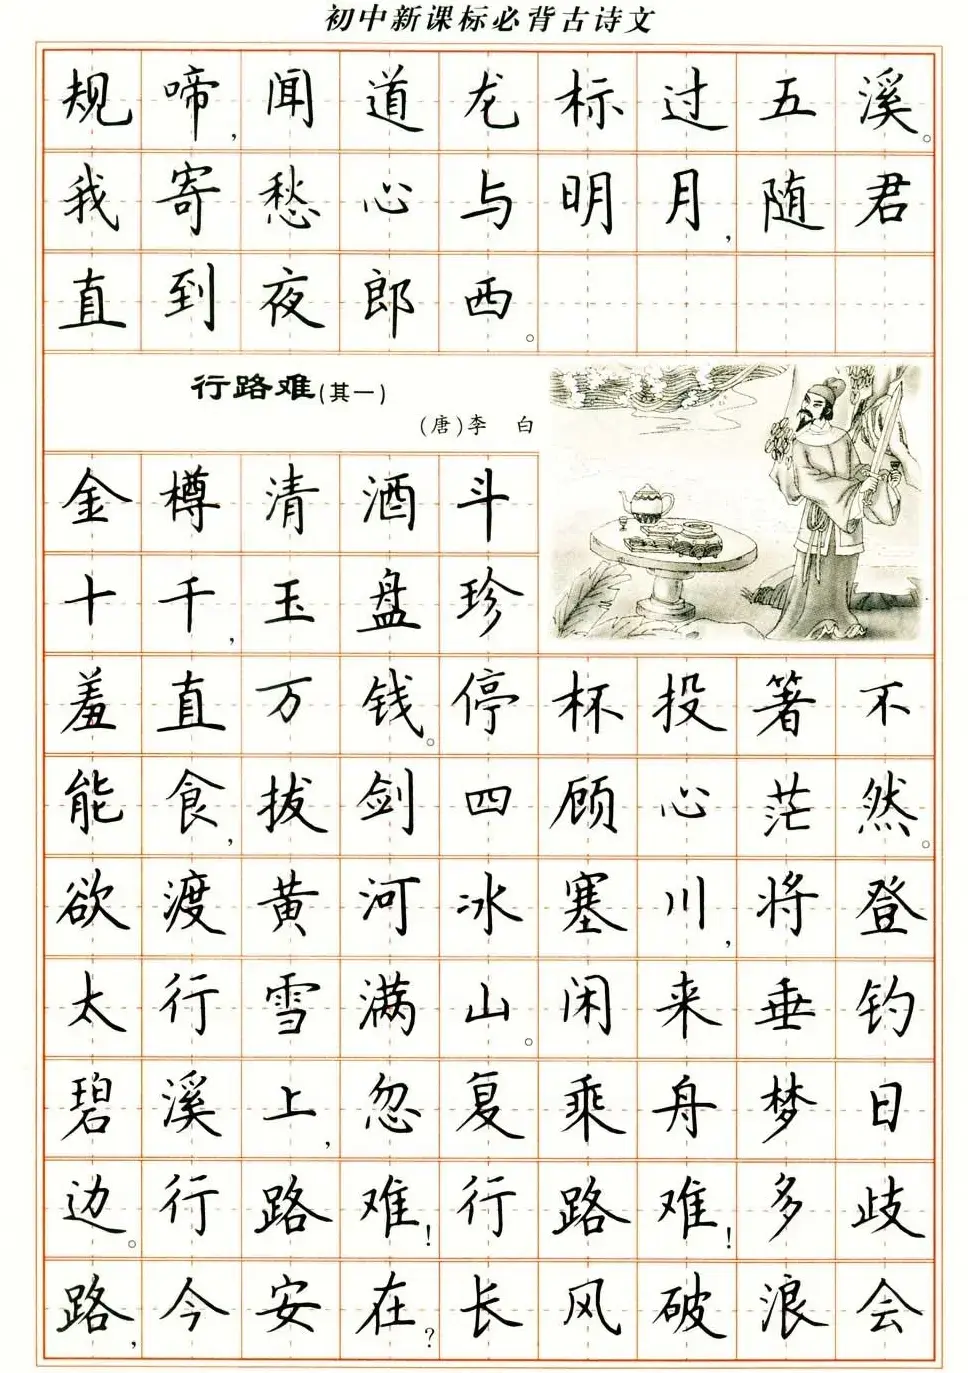 初中新课标必背古诗文
规啼,闻道龙标过五溪。
我寄愁心与明月,随君
直到夜郎西。
行路难(其一)
(唐)李 白
金樽清酒斗
十千,玉盘珍
羞直万钱。停杯投箸不
能食,拔剑四顾心茫然。
欲渡黄河冰塞川,将登
太行雪满山。闲来垂钓
碧溪上,忽复乘舟梦日
边。行路难!行路难!多歧
路,今安在?长风破浪会